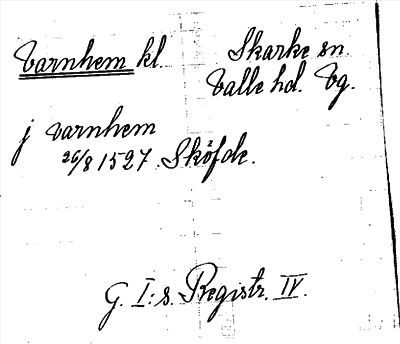 Varnhem kl. Skarke sn.
Valle hd. Vg.
j varnhem
26/8 1527 Sköfde.
G. I:s. Registr. IV.